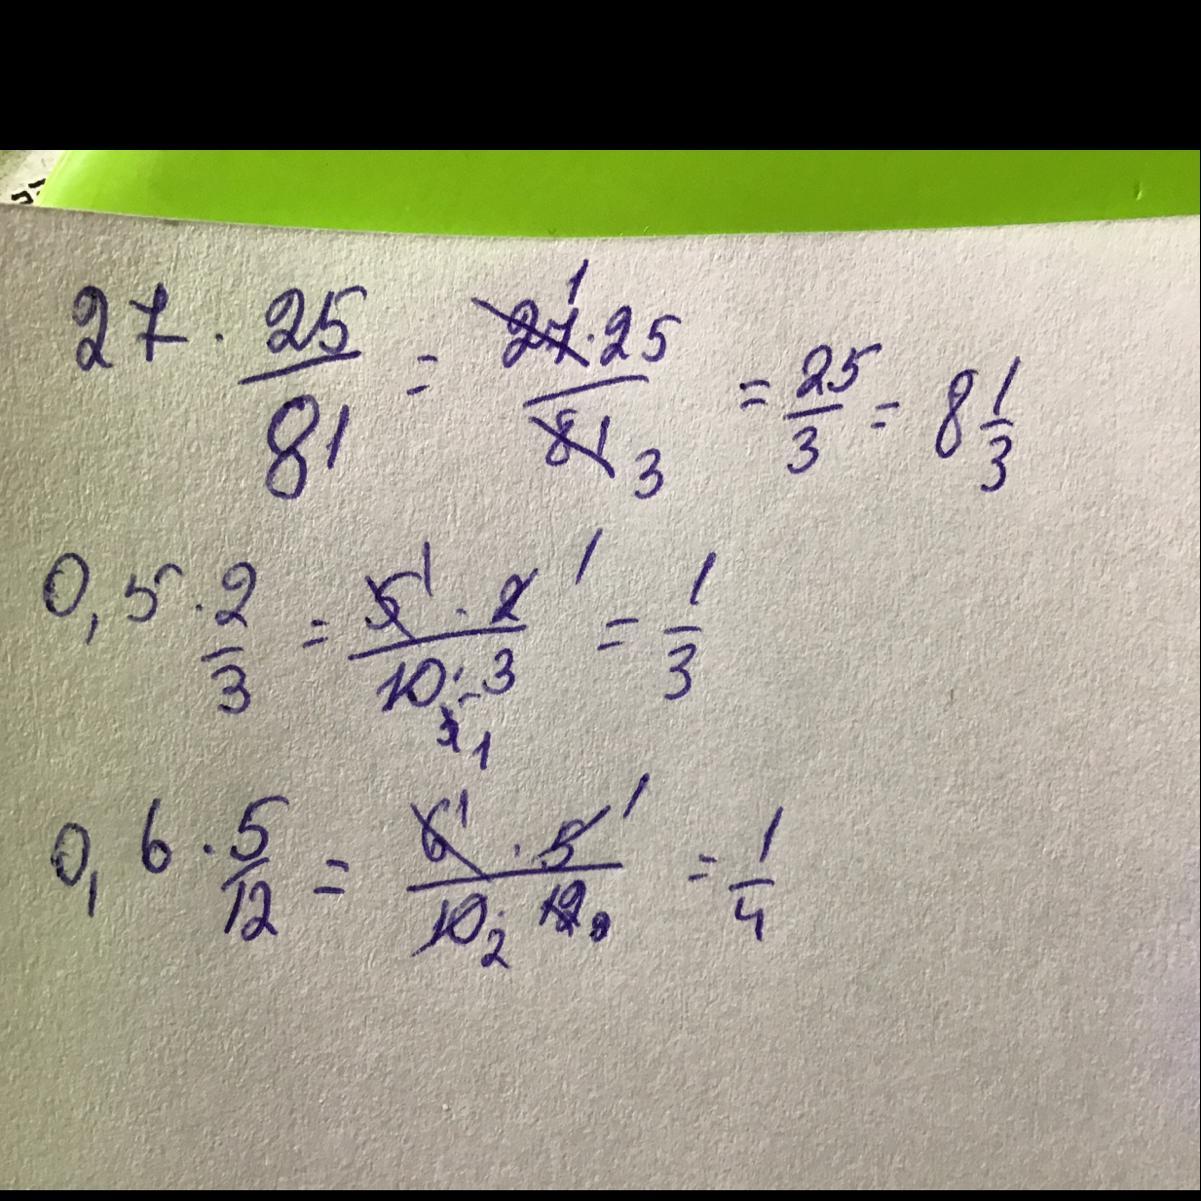 27 · 25/81 = 27¹ · 25 / 81 3 = 25/3 = 8 1/3
0,5 · 2/3 = 5¹ · 2¹ / 10 · 3 1 = 1/3
0,6 · 5/12 = 6¹ · 5¹ / 10 2 · 12 = 1/4